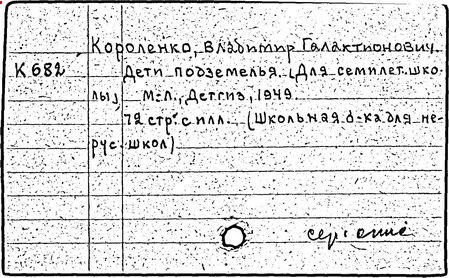 Короленко, Владимир Галактионович.
К682 Дети подземелья. [Для семилет. шко-
лы] М.-Л., Детгиз, 1949.
72 стр. с илл. (Школьная б-ка для не-
рус. школ)